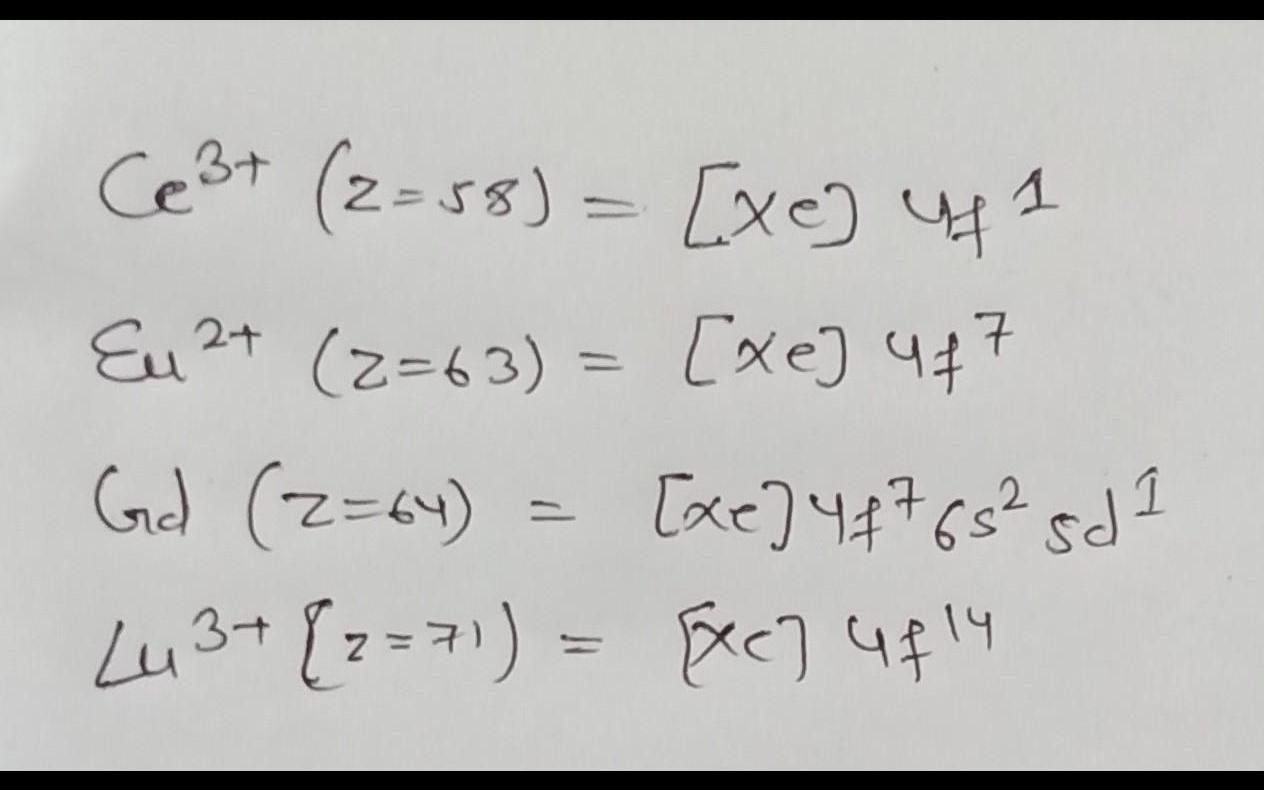 Ce³⁺ (z=58) = [xe] 4f¹
Eu²⁺ (z=63) = [xe] 4f⁷
Gd (z=64) = [xe] 4f⁷ 6s² 5d¹
Lu³⁺ [z=71) = [xe] 4f¹⁴